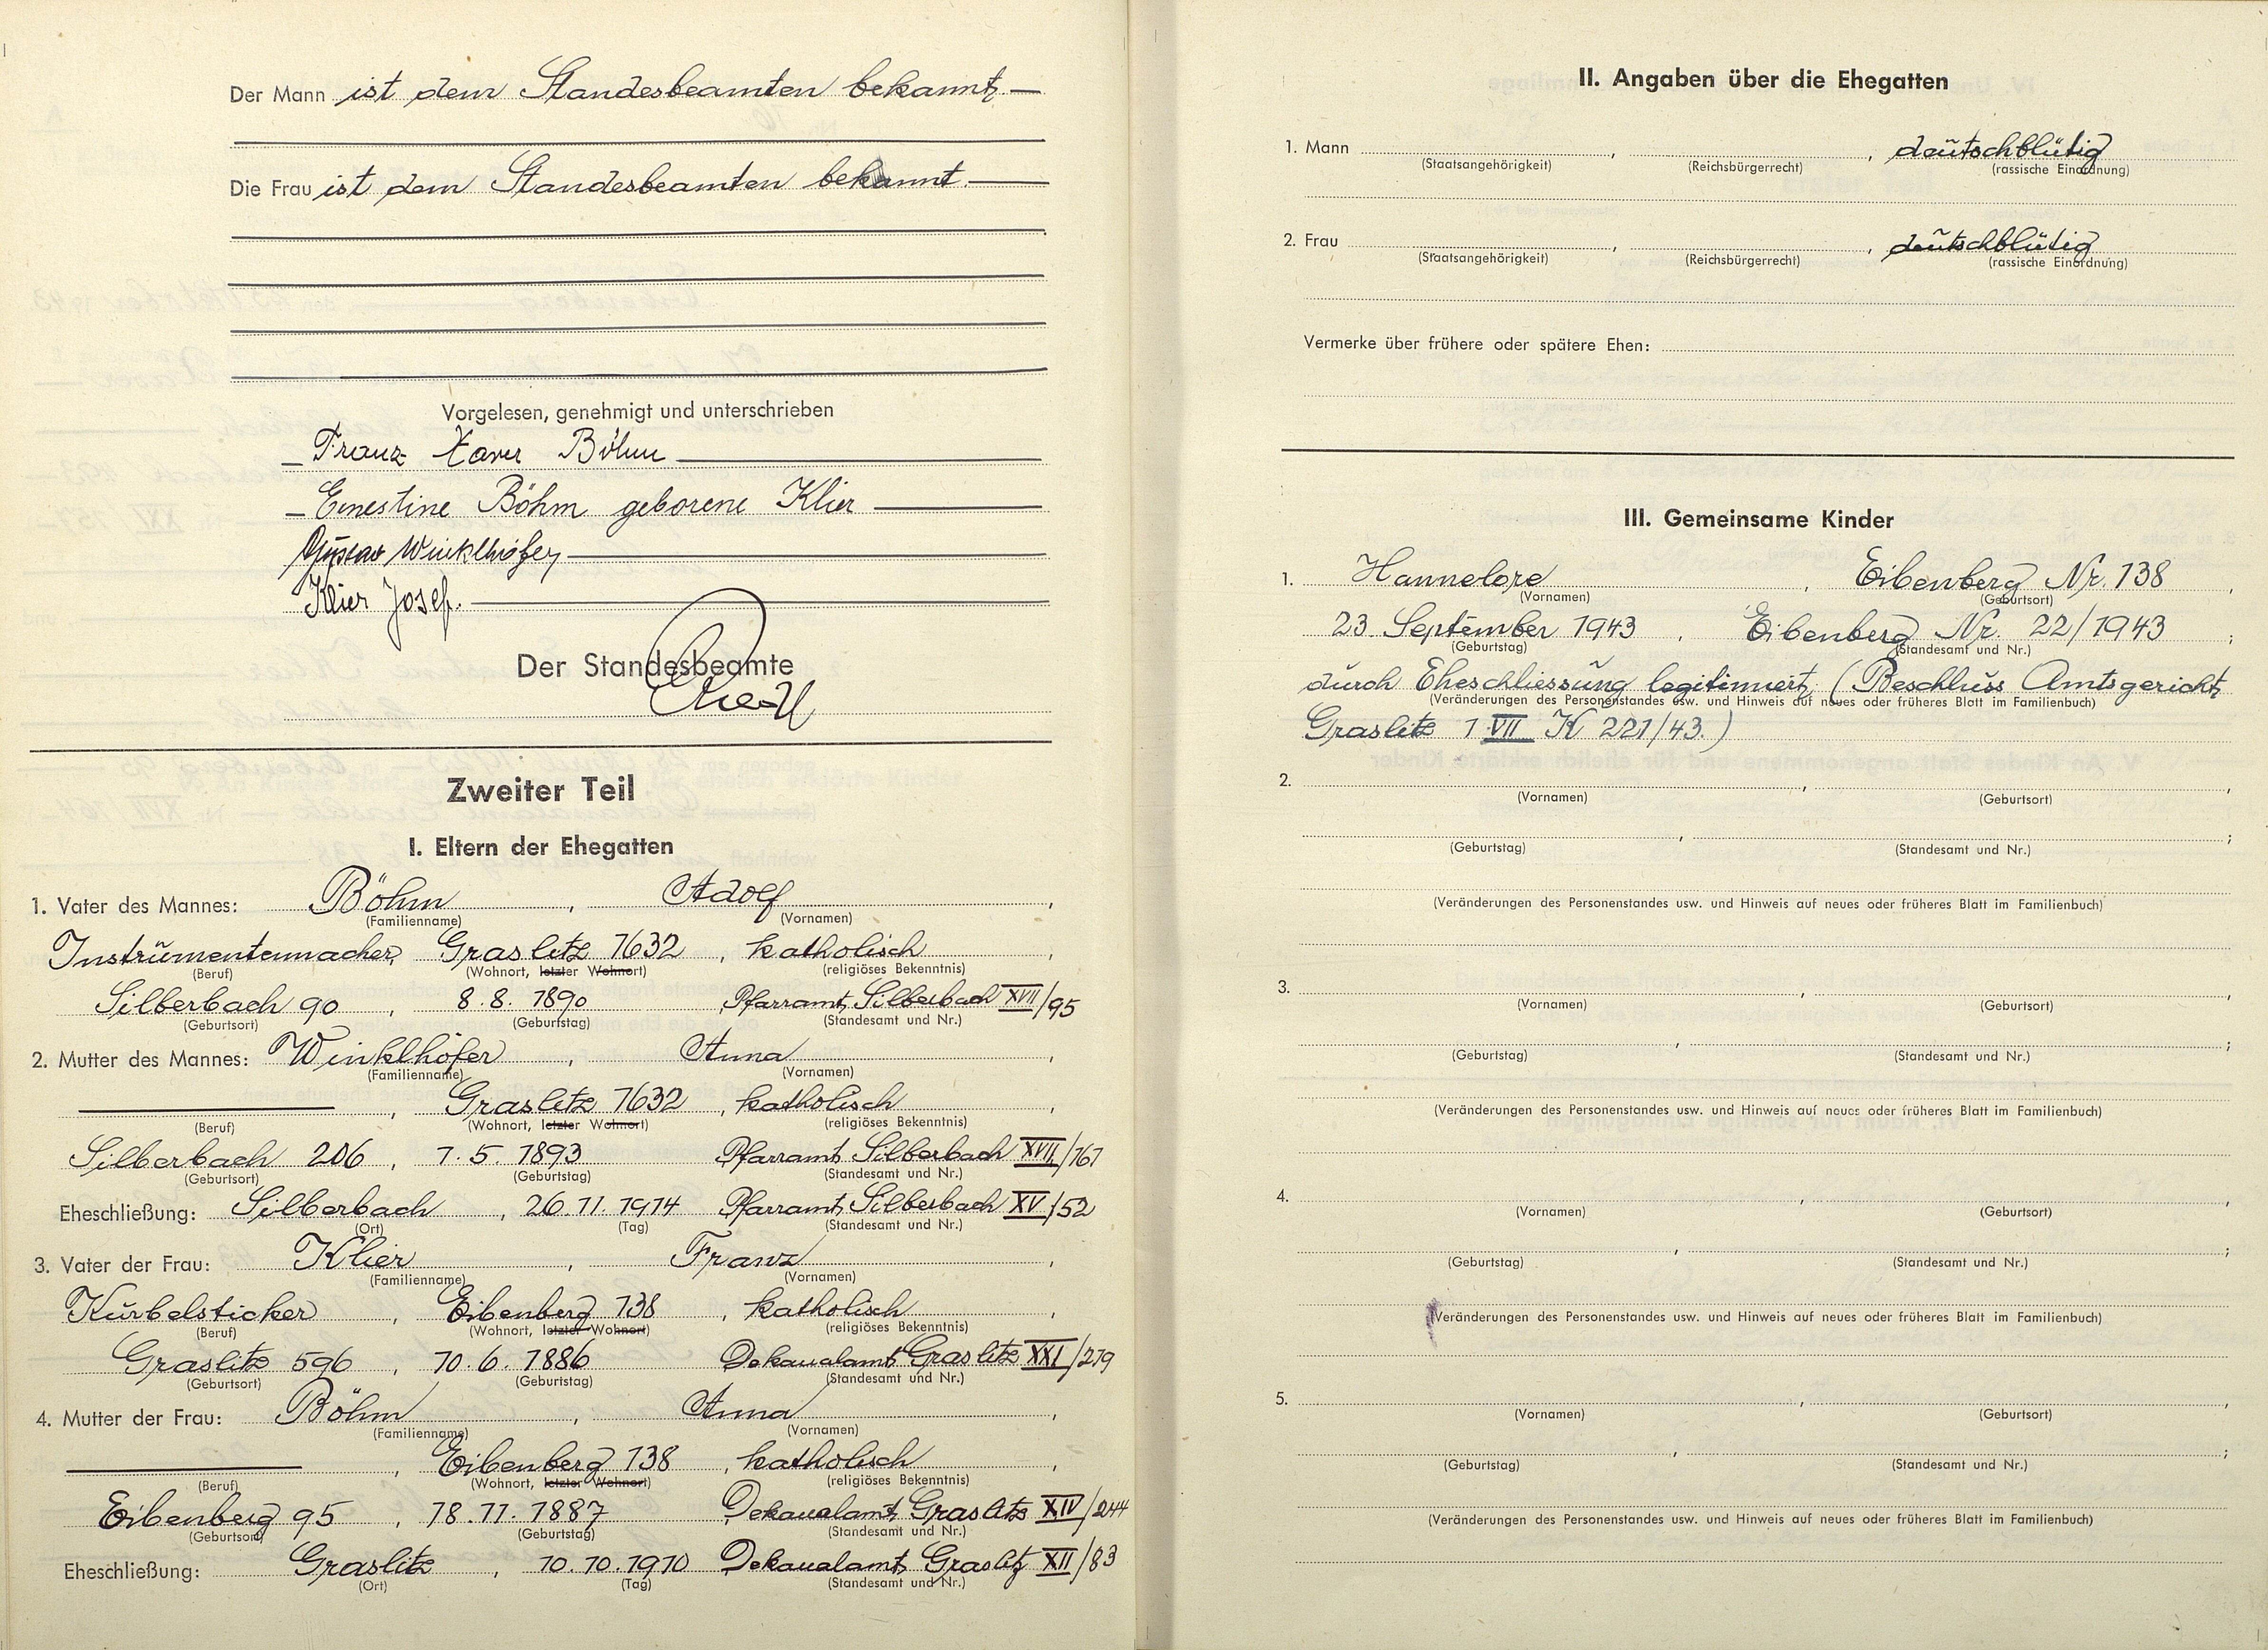 Der Mann ist dem Standesbeamten bekannt. —
Die Frau ist dem Standesbeamten bekannt. —
Vorgelesen, genehmigt und unterschrieben
Franz Xaver Böhm
Ernestine Böhm geborene Klier
Gustav Winklhöfer
Klier Josef.
Der Standesbeamte
Zweiter Teil
I. Eltern der Ehegatten
1. Vater des Mannes: Böhm, Adolf,
(Familienname) (Vornamen)
Instrumentenmacher, Graslitz 1632, katholisch,
(Beruf) (Wohnort, letzter Wohnort) (religiöses Bekenntnis)
Silberbach 90, 8.8.1890, Pfarramt Silberbach XVII/95
(Geburtsort) (Geburtstag) (Standesamt und Nr.)
2. Mutter des Mannes: Winklhöfer, Anna,
(Familienname) (Vornamen)
—, Graslitz 1632, katholisch,
(Beruf) (Wohnort, letzter Wohnort) (religiöses Bekenntnis)
Silberbach 206, 1.5.1893 Pfarramt Silberbach XVII/161
(Geburtsort) (Geburtstag) (Standesamt und Nr.)
Eheschließung: Silberbach, 26.11.1914 Pfarramt Silberbach XV/52
(Ort) (Tag) (Standesamt und Nr.)
3. Vater der Frau: Klier, Franz,
(Familienname) (Vornamen)
Kurbelsticker, Eibenberg 138, katholisch,
(Beruf) (Wohnort, letzter Wohnort) (religiöses Bekenntnis)
Graslitz 596, 10.6.1886 Dekanalamt Graslitz XXI/219
(Geburtsort) (Geburtstag) (Standesamt und Nr.)
4. Mutter der Frau: Böhm, Anna,
(Familienname) (Vornamen)
—, Eibenberg 138, katholisch,
(Beruf) (Wohnort, letzter Wohnort) (religiöses Bekenntnis)
Eibenberg 95, 18.11.1887 Dekanalamt Graslitz XIV/244
(Geburtsort) (Geburtstag) (Standesamt und Nr.)
Eheschließung: Graslitz, 10.10.1910 Dekanalamt Graslitz XII/83
(Ort) (Tag) (Standesamt und Nr.)
II. Angaben über die Ehegatten
1. Mann , , deutschblütig
(Staatsangehörigkeit) (Reichsbürgerrecht) (rassische Einordnung)
2. Frau , , deutschblütig
(Staatsangehörigkeit) (Reichsbürgerrecht) (rassische Einordnung)
Vermerke über frühere oder spätere Ehen:
III. Gemeinsame Kinder
1. Hannelore, Eibenberg Nr. 138,
(Vornamen) (Geburtsort)
23. September 1943, Eibenberg Nr. 22/1943;
(Geburtstag) (Standesamt und Nr.)
durch Eheschliessung legitimiert, (Beschluss Amtsgericht
(Veränderungen des Personenstandes usw. und Hinweis auf neues oder früheres Blatt im Familienbuch)
Graslitz 1 VII K 221/43.)
2. , ,
(Vornamen) (Geburtsort)
, ;
(Geburtstag) (Standesamt und Nr.)
(Veränderungen des Personenstandes usw. und Hinweis auf neues oder früheres Blatt im Familienbuch)
3. , ,
(Vornamen) (Geburtsort)
, ;
(Geburtstag) (Standesamt und Nr.)
(Veränderungen des Personenstandes usw. und Hinweis auf neues oder früheres Blatt im Familienbuch)
4. , ,
(Vornamen) (Geburtsort)
, ;
(Geburtstag) (Standesamt und Nr.)
(Veränderungen des Personenstandes usw. und Hinweis auf neues oder früheres Blatt im Familienbuch)
5. , ,
(Vornamen) (Geburtsort)
, ;
(Geburtstag) (Standesamt und Nr.)
(Veränderungen des Personenstandes usw. und Hinweis auf neues oder früheres Blatt im Familienbuch)